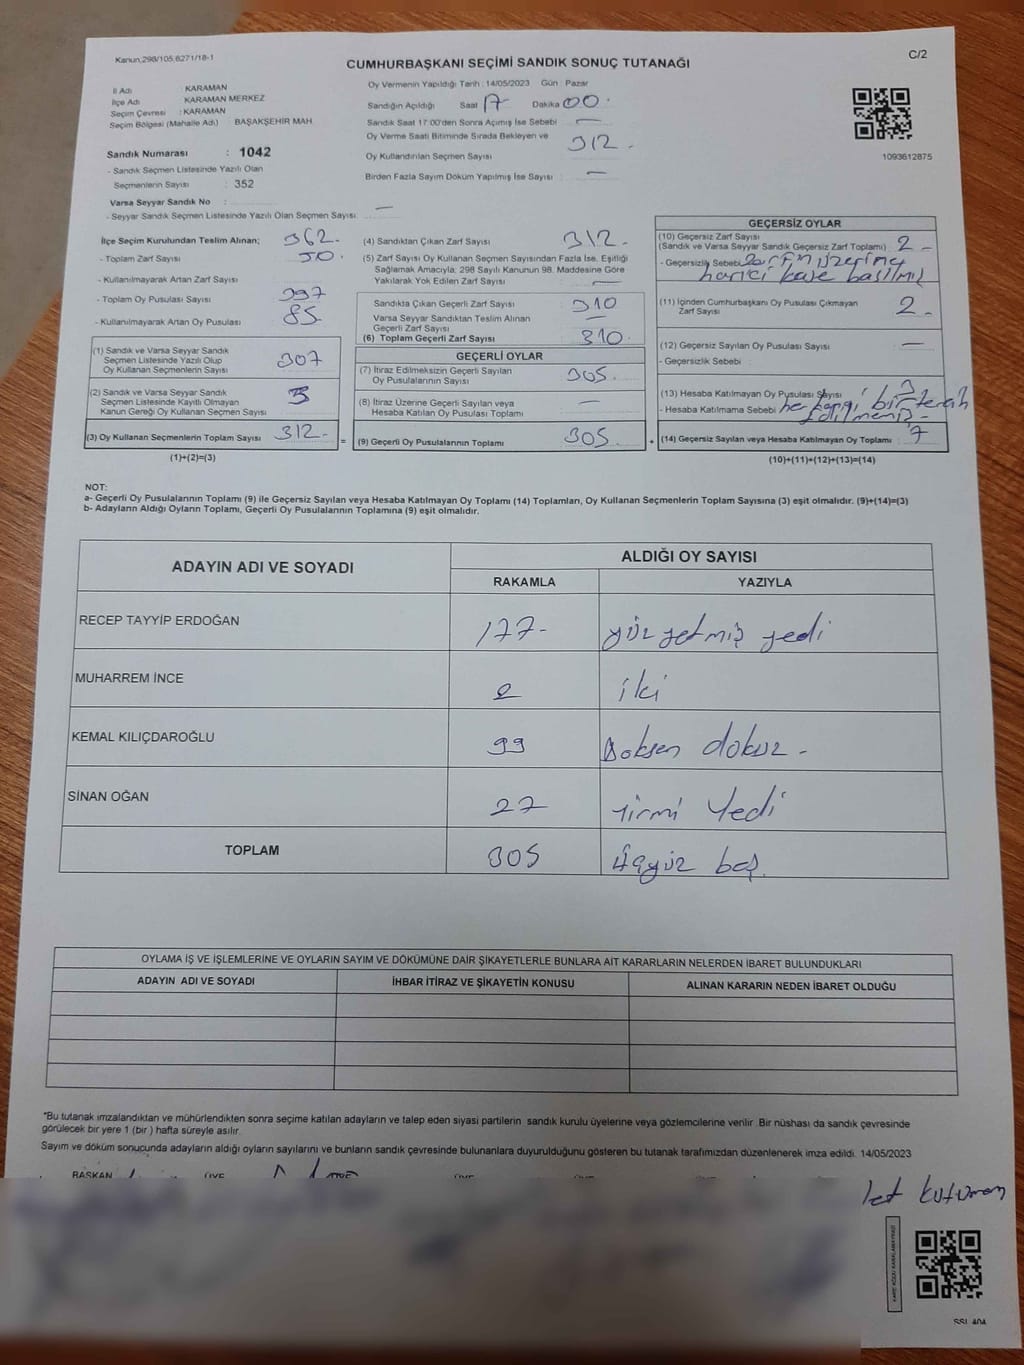 Kanun:298/105,6271/18-1
C/2
CUMHURBAŞKANI SEÇİMİ SANDIK SONUÇ TUTANAĞI
İl Adı : KARAMAN
İlçe Adı : KARAMAN MERKEZ
Seçim Çevresi : KARAMAN
Seçim Bölgesi (Mahalle Adı) : BAŞAKŞEHİR MAH.
Sandık Numarası : 1042
- Sandık Seçmen Listesinde Yazılı Olan
Seçmenlerin Sayısı : 352
Varsa Seyyar Sandık No :
- Seyyar Sandık Seçmen Listesinde Yazılı Olan Seçmen Sayısı: —
Oy Vermenin Yapıldığı Tarih : 14/05/2023 Gün Pazar
Sandığın Açıldığı Saat 17 Dakika 00.
Sandık Saat 17:00'den Sonra Açılmış İse Sebebi —
Oy Verme Saati Bitiminde Sırada Bekleyen ve
Oy Kullandırılan Seçmen Sayısı 312.
Birden Fazla Sayım Döküm Yapılmış İse Sayısı : —
1093612875
İlçe Seçim Kurulundan Teslim Alınan;
- Toplam Zarf Sayısı 362.
- Kullanılmayarak Artan Zarf Sayısı 50.
- Toplam Oy Pusulası Sayısı 397
- Kullanılmayarak Artan Oy Pusulası 85.
(1) Sandık ve Varsa Seyyar Sandık
Seçmen Listesinde Yazılı Olup
Oy Kullanan Seçmenlerin Sayısı 307
(2) Sandık ve Varsa Seyyar Sandık
Seçmen Listesinde Kayıtlı Olmayan
Kanun Gereği Oy Kullanan Seçmen Sayısı 5
(3) Oy Kullanan Seçmenlerin Toplam Sayısı 312.
(1)+(2)=(3)
(4) Sandıktan Çıkan Zarf Sayısı 312.
(5) Zarf Sayısı Oy Kullanan Seçmen Sayısından Fazla İse, Eşitliği
Sağlamak Amacıyla; 298 Sayılı Kanunun 98. Maddesine Göre
Yakılarak Yok Edilen Zarf Sayısı —
Sandıkta Çıkan Geçerli Zarf Sayısı 310
Varsa Seyyar Sandıktan Teslim Alınan
Geçerli Zarf Sayısı —
(6) Toplam Geçerli Zarf Sayısı 310.
GEÇERLİ OYLAR
(7) İtiraz Edilmeksizin Geçerli Sayılan
Oy Pusulalarının Sayısı 305.
(8) İtiraz Üzerine Geçerli Sayılan veya
Hesaba Katılan Oy Pusulası Toplamı —
= (9) Geçerli Oy Pusulalarının Toplamı 305. +
GEÇERSİZ OYLAR
(10) Geçersiz Zarf Sayısı
(Sandık ve Varsa Seyyar Sandık Geçersiz Zarf Toplamı) 2 -
- Geçersizlik Sebebi: zarfın üzerine
harici kaşe basılmış
(11) İçinden Cumhurbaşkanı Oy Pusulası Çıkmayan
Zarf Sayısı 2.
(12) Geçersiz Sayılan Oy Pusulası Sayısı —
- Geçersizlik Sebebi :
(13) Hesaba Katılmayan Oy Pusulası Sayısı 3
- Hesaba Katılmama Sebebi herhangi bir tercih
edilmemiş
(14) Geçersiz Sayılan veya Hesaba Katılmayan Oy Toplamı : 7
(10)+(11)+(12)+(13)=(14)
NOT:
a- Geçerli Oy Pusulalarının Toplamı (9) ile Geçersiz Sayılan veya Hesaba Katılmayan Oy Toplamı (14) Toplamları, Oy Kullanan Seçmenlerin Toplam Sayısına (3) eşit olmalıdır. (9)+(14)=(3)
b- Adayların Aldığı Oyların Toplamı, Geçerli Oy Pusulalarının Toplamına (9) eşit olmalıdır.
ADAYIN ADI VE SOYADI ALDIĞI OY SAYISI
RAKAMLA YAZIYLA
RECEP TAYYİP ERDOĞAN 177- yüz yetmiş yedi
MUHARREM İNCE 2 iki
KEMAL KILIÇDAROĞLU 99 Doksen dokuz -
SİNAN OĞAN 27 Yirmi Yedi
TOPLAM 305 üçyüz beş.
OYLAMA İŞ VE İŞLEMLERİNE VE OYLARIN SAYIM VE DÖKÜMÜNE DAİR ŞİKAYETLERLE BUNLARA AİT KARARLARIN NELERDEN İBARET BULUNDUKLARI
ADAYIN ADI VE SOYADI İHBAR İTİRAZ VE ŞİKAYETİN KONUSU ALINAN KARARIN NEDEN İBARET OLDUĞU
*Bu tutanak imzalandıktan ve mühürlendikten sonra seçime katılan adayların ve talep eden siyasi partilerin sandık kurulu üyelerine veya gözlemcilerine verilir. Bir nüshası da sandık çevresinde
görülecek bir yere 1 (bir ) hafta süreyle asılır.
Sayım ve döküm sonucunda adayların aldığı oyların sayılarını ve bunların sandık çevresinde bulunanlara duyurulduğunu gösteren bu tutanak tarafımızdan düzenlenerek imza edildi. 14/05/2023
BAŞKAN ÜYE ÜYE ÜYE
SSI 404